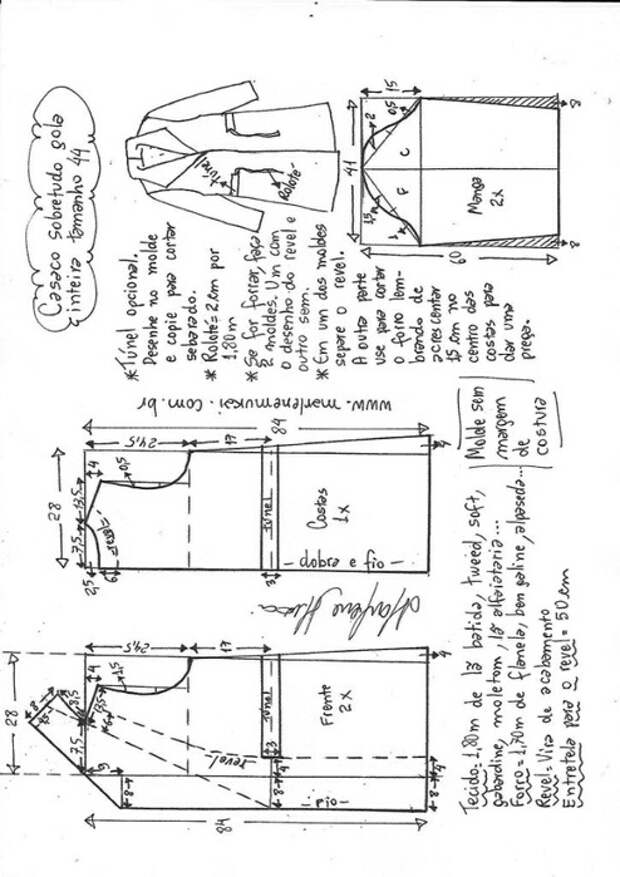 Casaco Sobretudo gola
inteira tamanho 44
túnel
Rolotê
*Túnel opcional.
Desenhe no molde
e copie para cortar
sebarado.
* Rolotê= 2cm por
1,80m
*Se for forrar, faça
2 moldes. Um com
o desenho do revel e
outro sem.
*Em um dos moldes
separe o revel.
A outra parte
use para cortar
o forro lem-
brando de
acrescentar
15 cm no
centro das
costas para
dar uma
prega.
41
15
2
0,5
1,5
1
F
C
Manga
2x
60
8
8
www.marlenemukai.com.br
28
84
24,5
17
7,5
13,5
4
0,5
2,5
6
revel
túnel
3
Costas
1x
fio e dobra
4
Molde sem
margem
de
costura
Marlene Mukai
28
84
24,5
17
8
8,5
7,5
13,5
4
1,5
6
9
8
revel
túnel
3
4
8
fio
Frente
2x
4
4
8
Tecido: 1,80m de lã batida, tweed, soft,
gabardine, moletom, lã alfaiataria...
Forro= 1,70m de flanela, bengaline, alpaseda...
Revel= Vira de acabamento
Entretela para o revel= 50cm